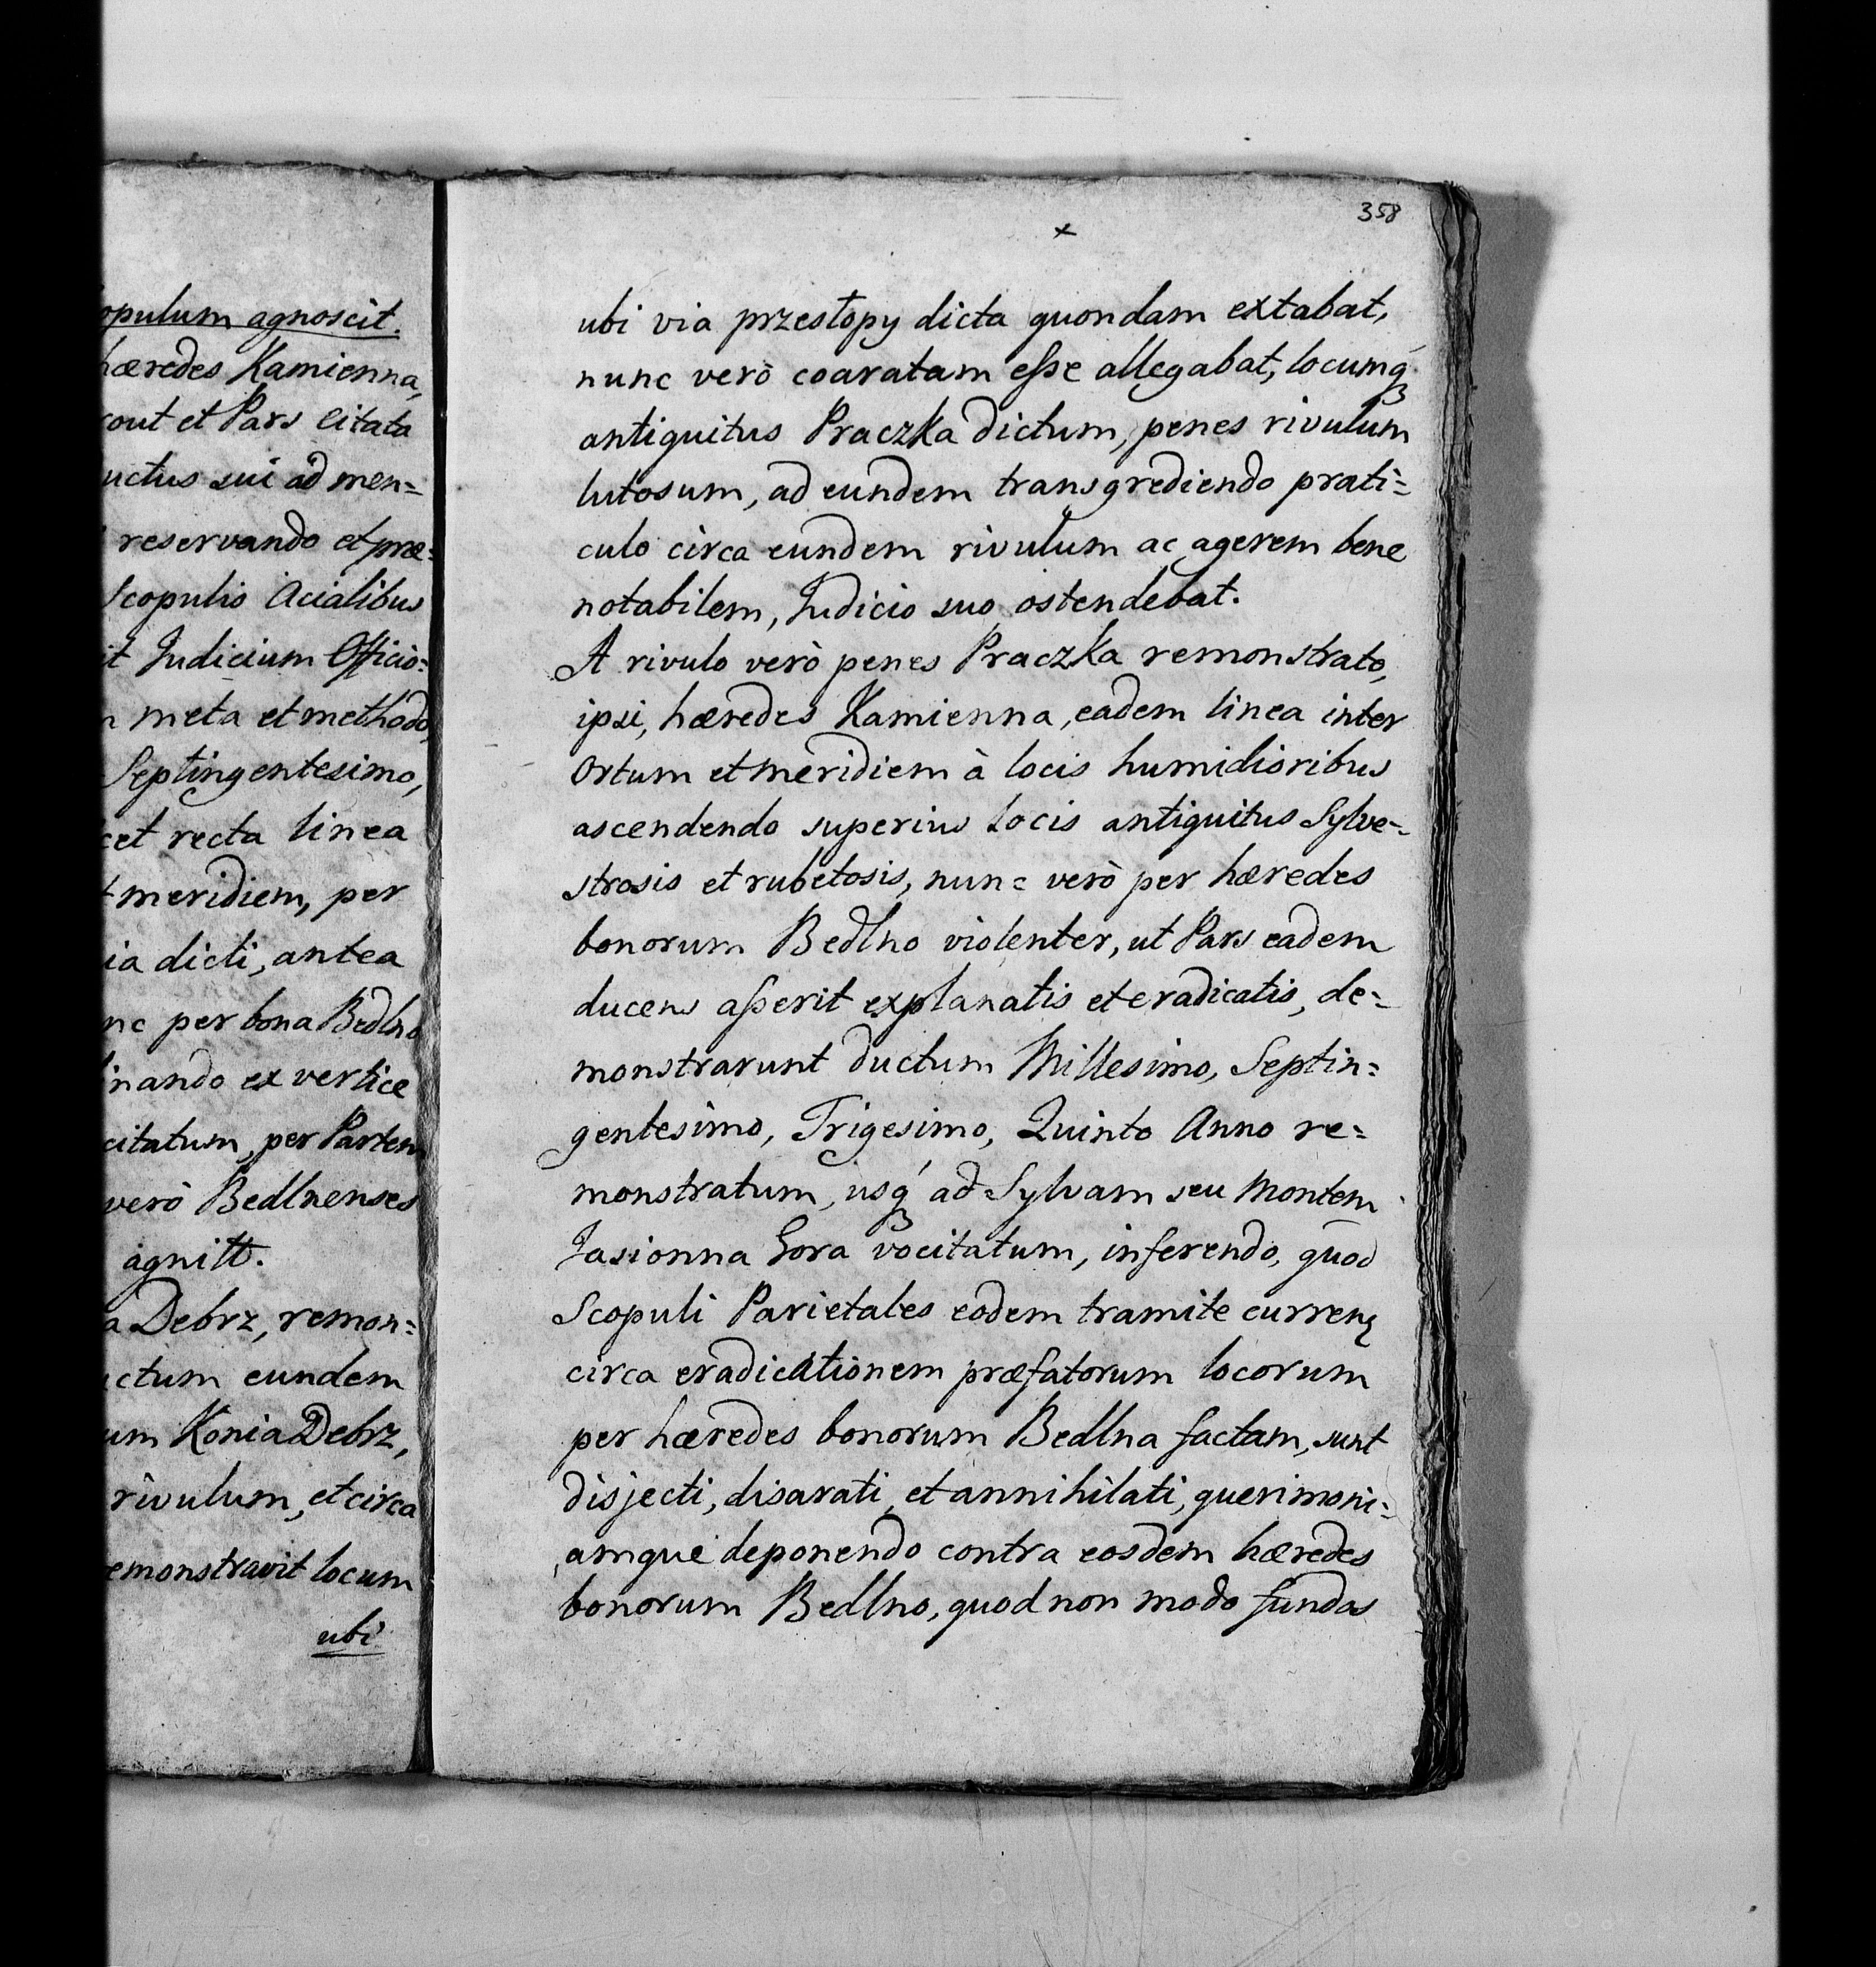 opulum agnoscit.
hæredes Kamienna,
rout et Pars citata
uctus sui ad men=
reservando et præ=
Scopulis Acialibus
it Judicium Officio=
n meta et methodo,
Septingentesimo,
cet recta linea
t meridiem, per
ia dicti, antea
nc per bona Bedlno
inando ex vertice
citatum, per Partem
verò Bedlnenses
agnitt.
a Debrz, remon=
uctum eundem
um Konia Debrz,
rivulum, et circa
emonstravit locum
ubi
358
x
ubi via przestopy dicta quondam extabat,
nunc verò coaratam esse allegabat, locumq́ꝫ
antiquitus Praczka dictum, penes rivulum
lutosum, ad eundem transgrediendo prati=
culo circa eundem rivulum ac agerem bene
notabilem, Judicio suo ostendebat.
A rivulo verò penes Praczka remonstrato,
ipsi, hæredes Kamienna, eadem linea inter
Ortum et meridiem à locis humidioribus
ascendendo superius locis antiquitus Sylve=
strosis et rubetosis, nunc verò per hæredes
bonorum Bedlno violenter, ut Pars eadem
ducens asserit explanatis et eradicatis, de=
monstrarunt ductum Millesimo, Septin=
gentesimo, Trigesimo, Quinto Anno re=
monstratum, usq́ꝫ ad Sylvam seu Montem
Jasionna Gora vocitatum, inferendo, qūod
Scopuli Parietales eodem tramite currenꝫ
circa eradicationem præfatorum locorum
per hæredes bonorum Bedlna factam, sunt
disjecti, disarati, et annihilati, querimoni=
amque deponendo contra eosdem hæredes
bonorum Bedlno, quod non modo fundos